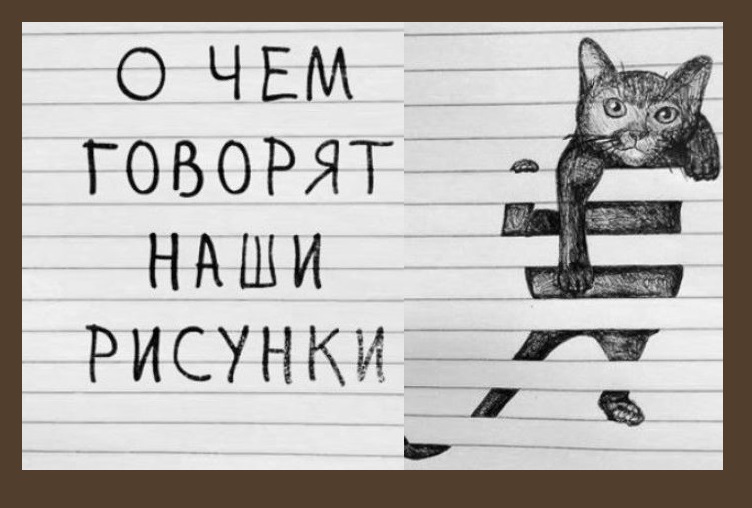 О ЧЕМ
ГОВОРЯТ
НАШИ
РИСУНКИ